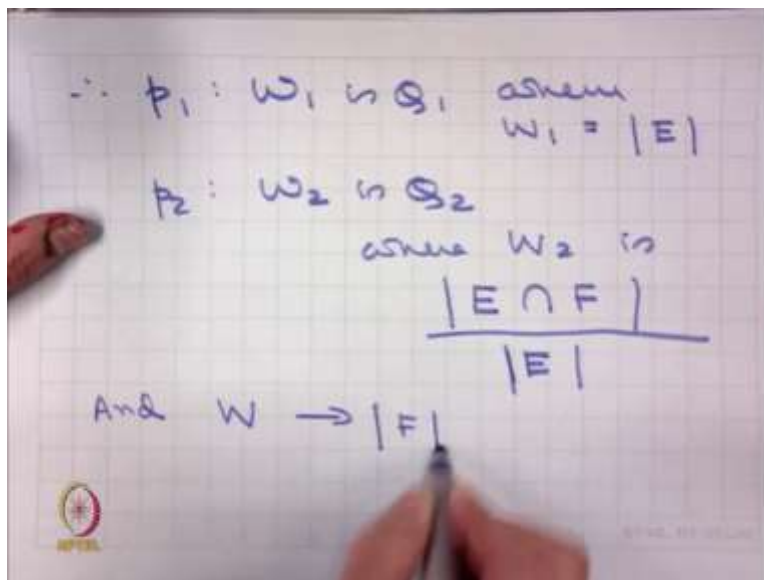 ∴ p₁ : W₁ is Q₁ where
W₁ = |E|
p₂ : W₂ is Q₂
where W₂ is
|E ∩ F|
|E|
And W → |F|
NPTEL